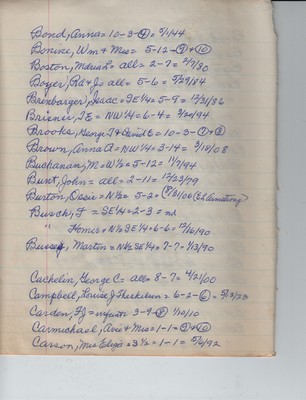 Bond, Anna = 10-3-④ = 9/1/44
Bonine, Wm & Mrs = 5-12-⑨ & ⑩
Boston, = all = 2-7 = 2/7/30
Boyer, Rd & J = all = 5-6 = 9/29/84
Brenbarger, Isaac = SE¼ = 5-9 = 12/31/36
Briener, TE = NW¼ = 6-4 = 3/20/94
Brooks, George T & David E = 10-3-① & ②
Brown, Anna A = NW¼ = 3-14 = 3/18/08
Buchanan, M = W½ = 5-12 = 1/7/94
Bunt, John = all = 2-11 = 12/23/79
Burton, Ossie = N½ = 5-2 = (8/21/06 (EL Armstrong)
Busch, F = SE¼ = 2-3 = nd
" Homer = N½ SE¼ = 6-6 = 12/16/90
Martin = N½ SE¼ = 7-7 = 1/3/90
Cachelin, George C = all = 8-7 = 4/21/00
Campbell, Louise J = 6-2-⑥ =
Carden, FJ = infant = 3-9-⑧ 1/10/10
Carmichael, Avis & Mrs = 1-1 = ⑨ & ⑩
Carson, Mrs Eliza = 3½ = 1-1 = 5/6/92